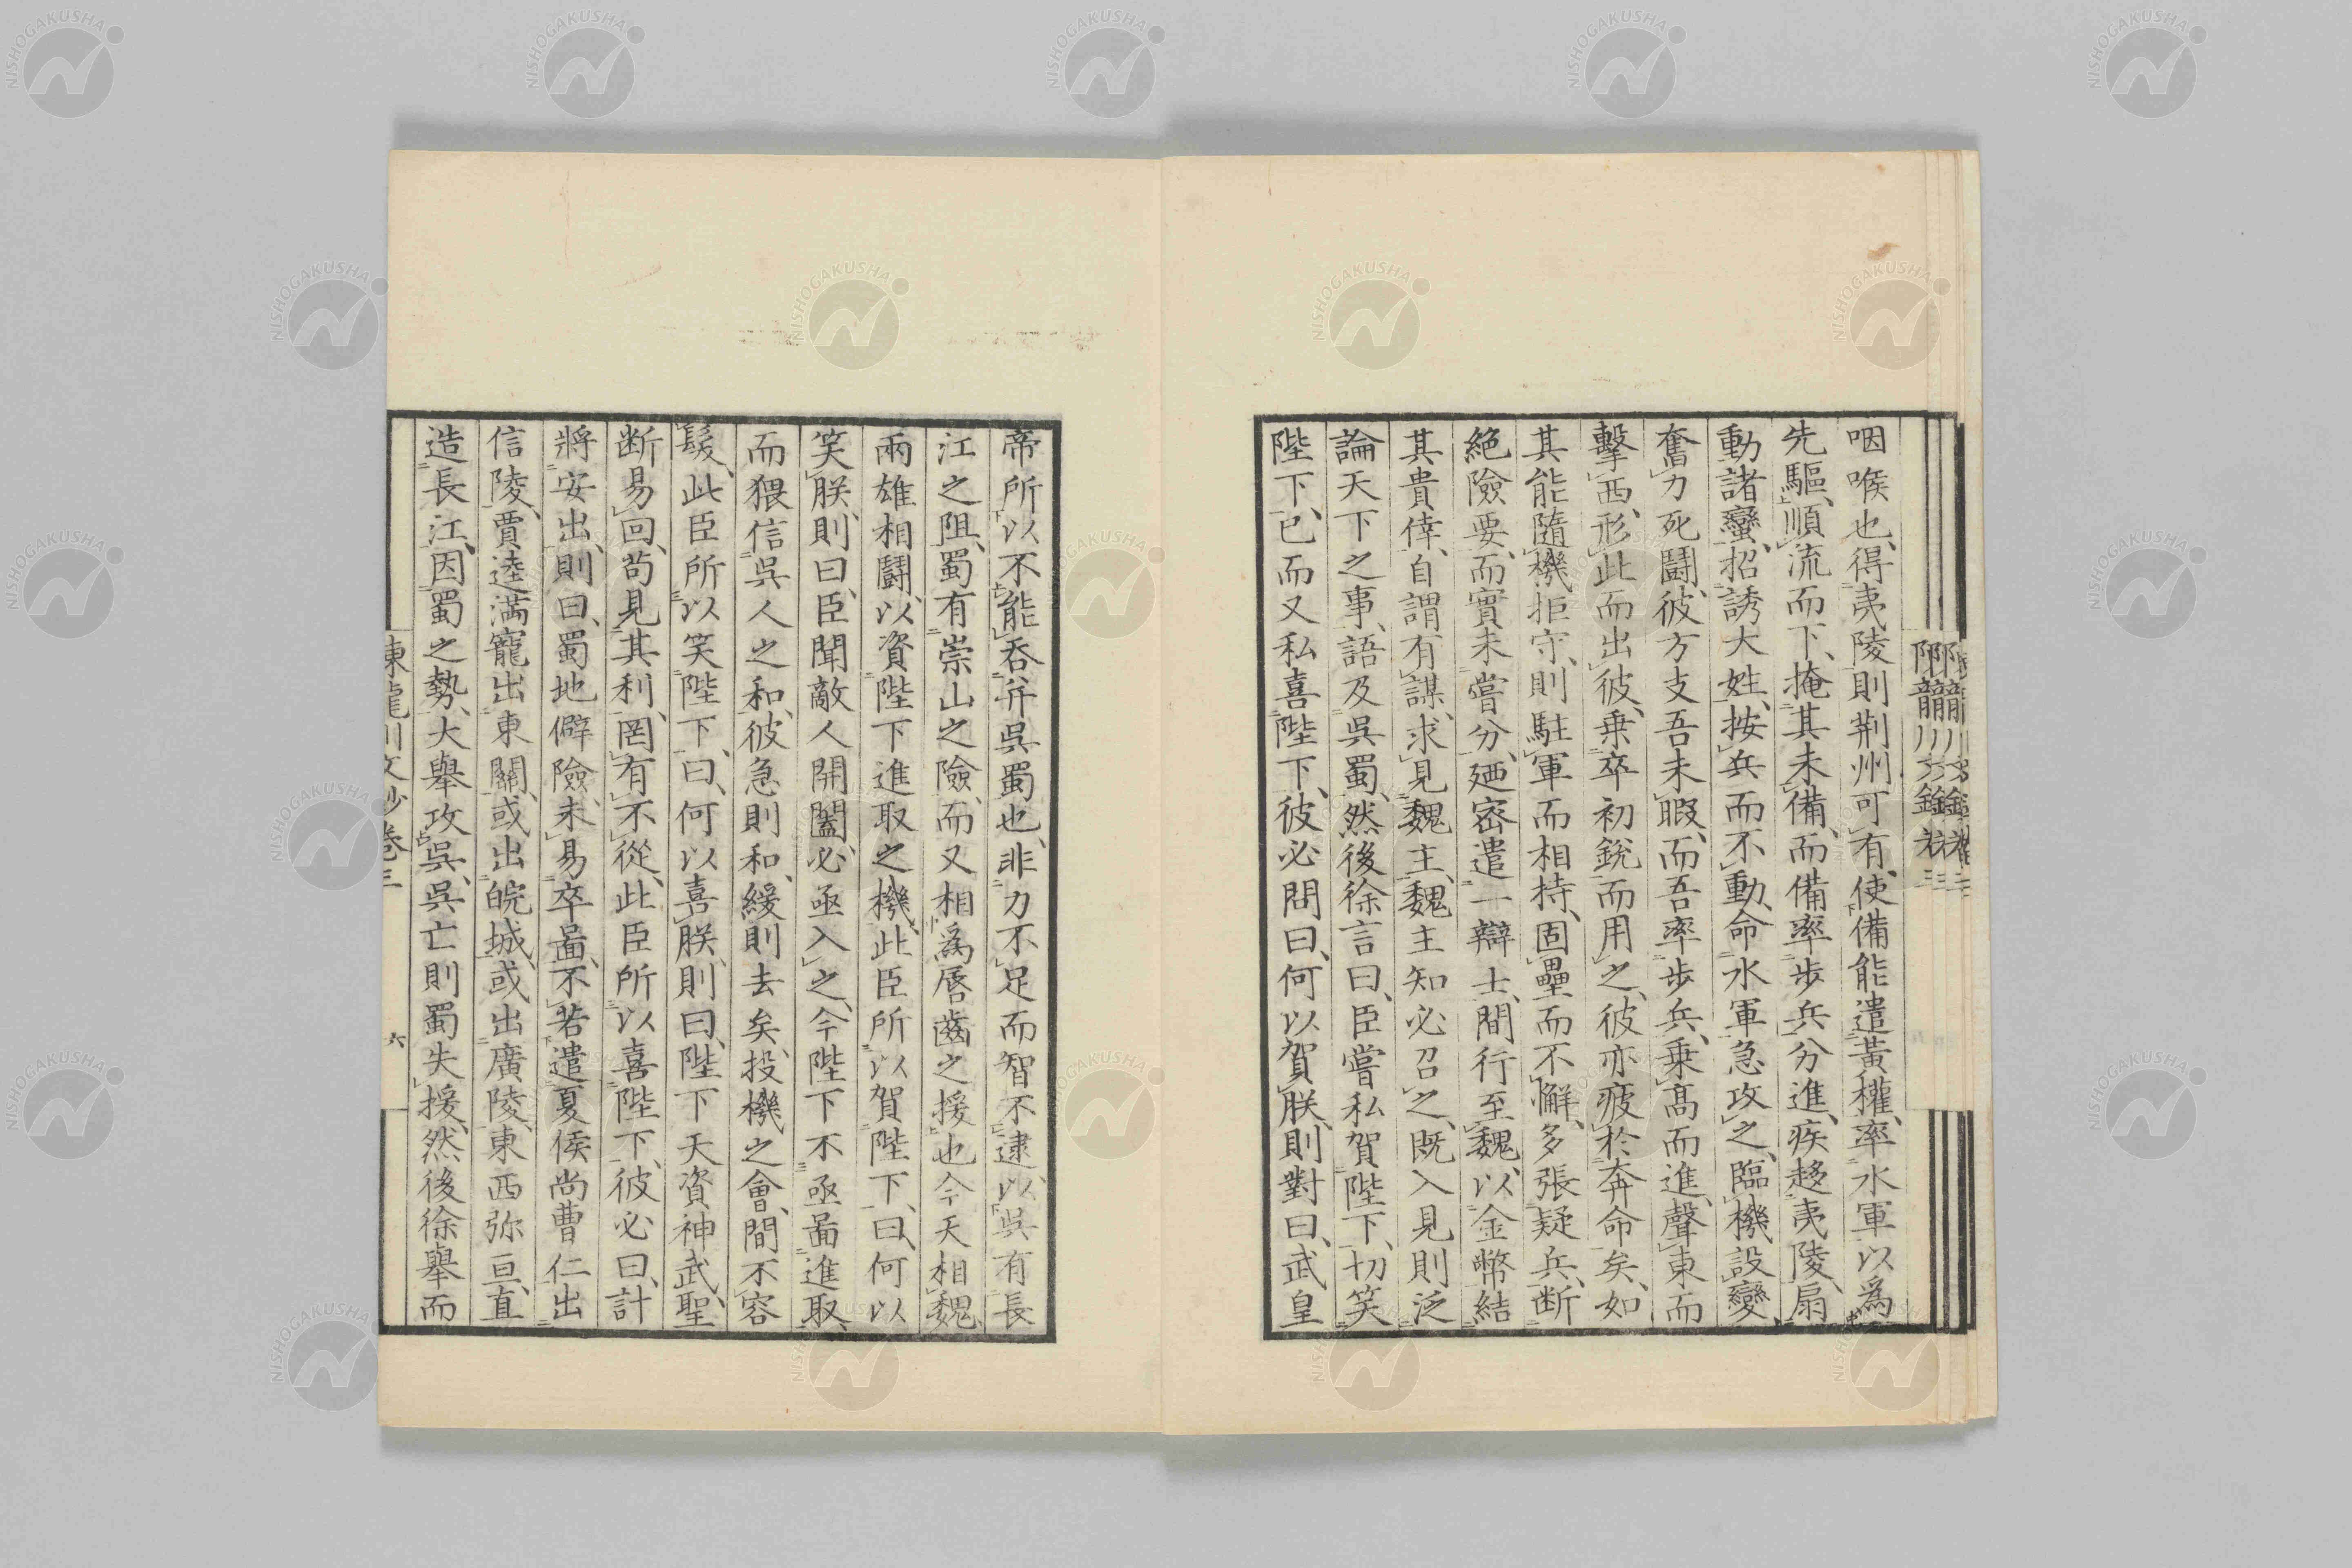 咽喉也、得夷陵、則荆州可有、使備能遣黃權、率水軍以爲
先驅、順流而下、掩其未備、而備率步兵分進、疾趍夷陵、扇
動諸蠻、招誘大姓、按兵而不動、命水軍急攻之、臨機設變
奮力死鬪、彼方支吾未暇、而吾率步兵、乗高而進、聲東而
擊西、形此而出彼、乗卒初銳而用之、彼亦疲於奔命矣、如
其能隨機拒守、則駐軍而相持、固壘而不懈、多張疑兵、断
絶險要、而實未嘗分、廼密遣一辯士、間行至魏、以金幣結
其貴倖、自謂有謀、求見魏主、魏主知必召之、既入見則泛
論天下之事、語及吳蜀、然後徐言曰、臣嘗私賀陛下、切笑
陛下、已而又私喜陛下、彼必問曰、何以賀朕、則對曰、武皇
帝所以不能吞幷吳蜀也、非力不足而智不逮、以吳有長
江之阻、蜀有崇山之險、而又相爲唇齒之援也、今天相魏、
兩雄相鬪、以資陛下進取之機、此臣所以賀陛下、曰、何以
笑朕、則曰、臣聞敵人開闔、必亟入之、今陛下不亟啚進取、
而猥信吳人之和、彼急則和、緩則去矣、投機之會、間不容
髮、此臣所以笑陛下、曰、何以喜朕、則曰、陛下天資神武、聖
断易回、苟見其利、罔有不從、此臣所以喜陛下、彼必曰、計
將安出、則曰、蜀地僻險、未易卒啚、不若遣夏侯尚曹仁出
信陵、賈逵満寵出東關、或出皖城、或出廣陵、東西弥亘、直
造長江、因蜀之勢、大舉攻吳、吳亡則蜀失援、然後徐舉而
陳龍川文抄卷三
六
NISHOGAKUSHA